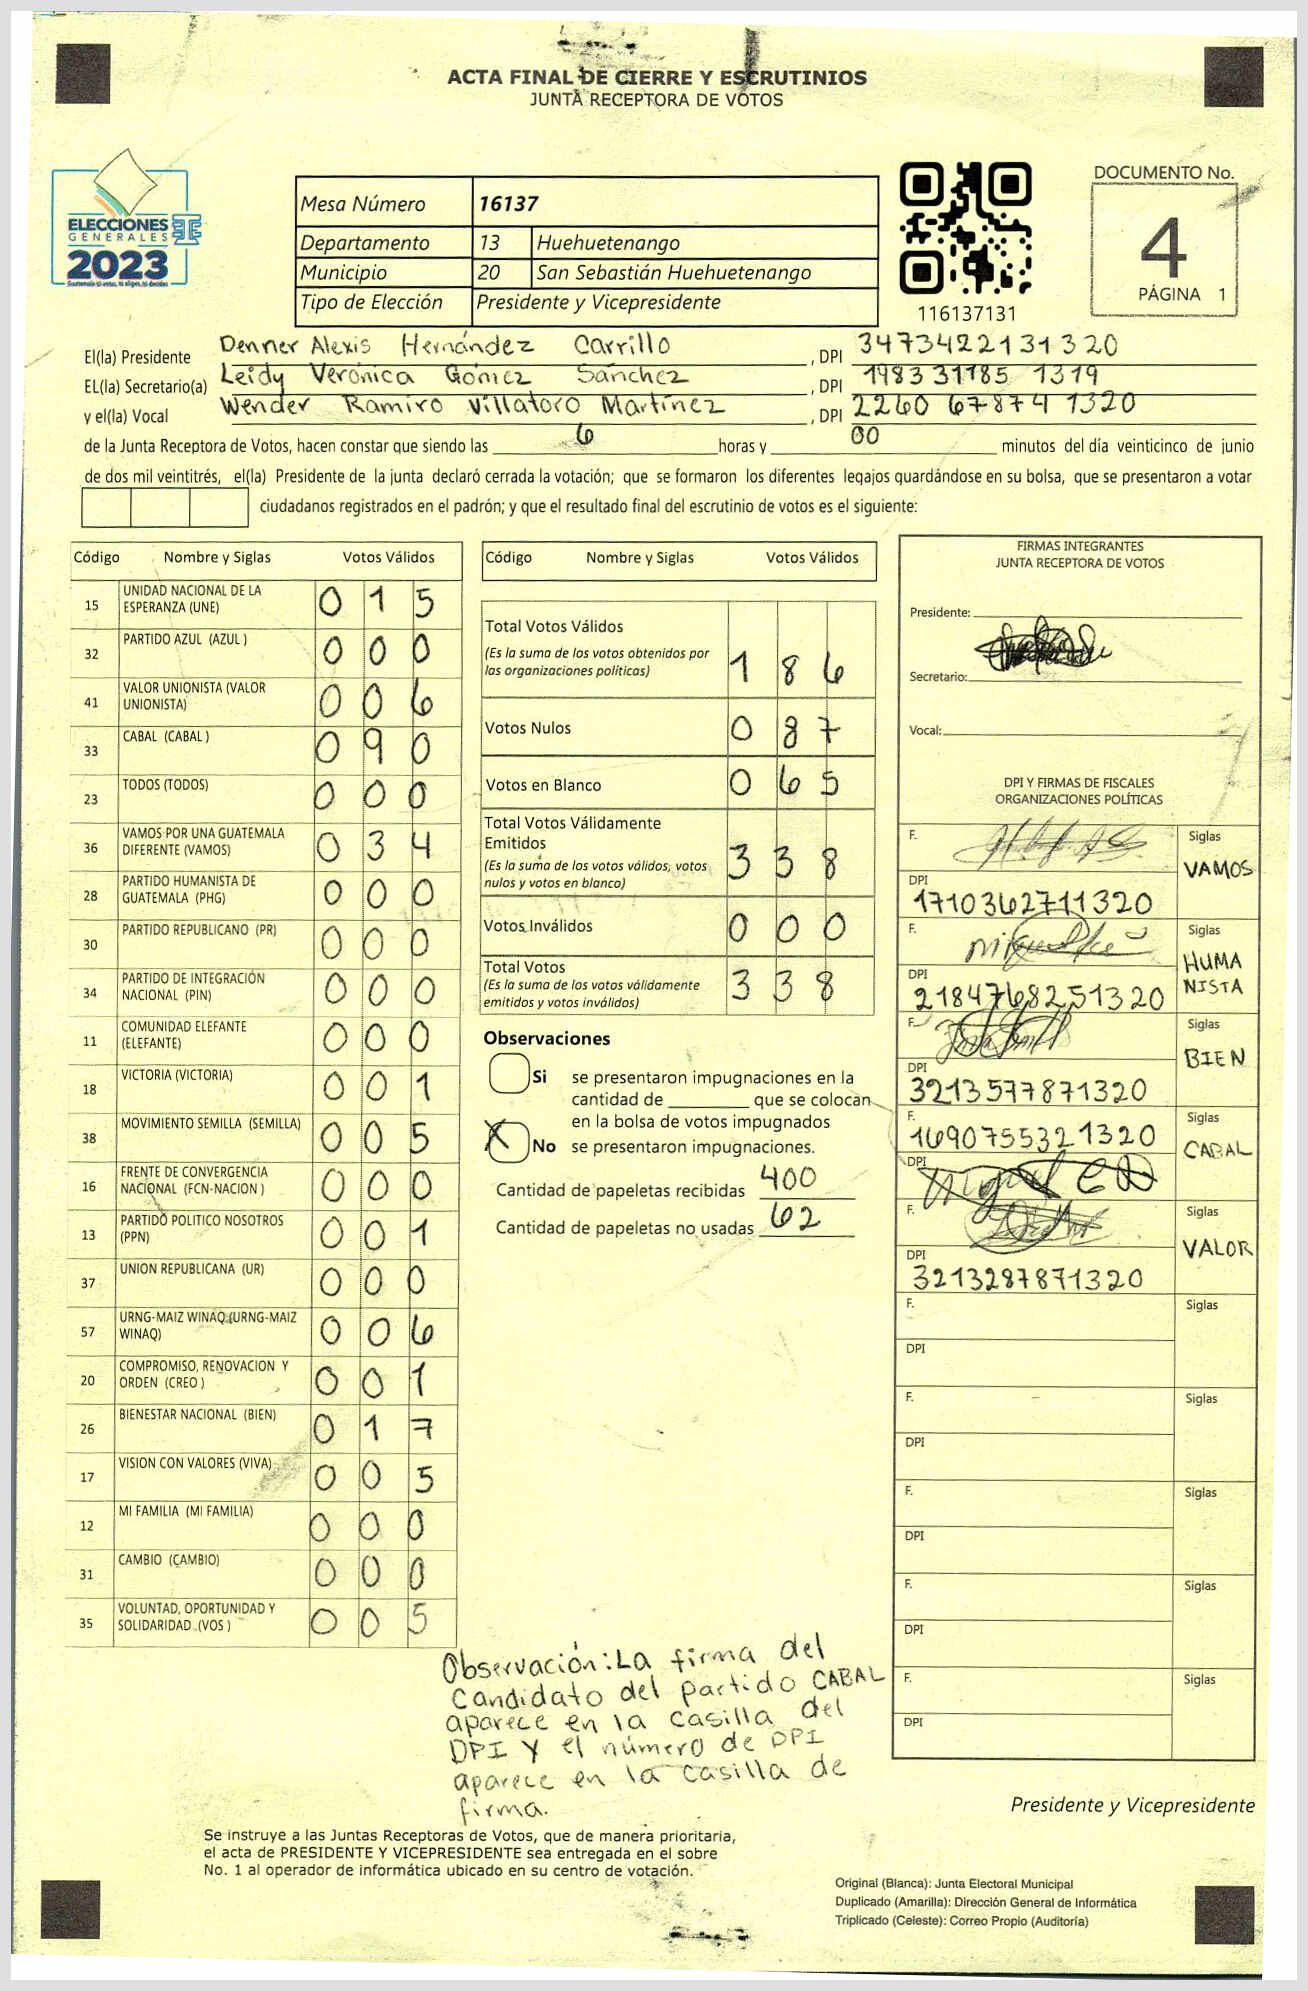 ACTA FINAL DE CIERRE Y ESCRUTINIOS
JUNTA RECEPTORA DE VOTOS
ELECCIONES
GENERALES
2023
Mesa Número 16137
Departamento 13 Huehuetenango
Municipio 20 San Sebastián Huehuetenango
Tipo de Elección Presidente y Vicepresidente
116137131
DOCUMENTO No.
4
PÁGINA 1
El(la) Presidente Denner Alexis Hernández Carrillo , DPI 3473422131320
EL(la) Secretario(a) Leidy Verónica Gómez Sánchez , DPI 1983 31185 1319
y el(la) Vocal Wender Ramiro Villatoro Martínez , DPI 2260 67874 1320
de la Junta Receptora de Votos, hacen constar que siendo las 6 horas y 00 minutos del día veinticinco de junio
de dos mil veintitrés, el(la) Presidente de la junta declaró cerrada la votación; que se formaron los diferentes legajos guardándose en su bolsa, que se presentaron a votar
ciudadanos registrados en el padrón; y que el resultado final del escrutinio de votos es el siguiente:
Código Nombre y Siglas Votos Válidos
15 UNIDAD NACIONAL DE LA ESPERANZA (UNE) 0 1 5
32 PARTIDO AZUL (AZUL ) 0 0 0
41 VALOR UNIONISTA (VALOR UNIONISTA) 0 0 6
33 CABAL (CABAL ) 0 9 0
23 TODOS (TODOS) 0 0 0
36 VAMOS POR UNA GUATEMALA DIFERENTE (VAMOS) 0 3 4
28 PARTIDO HUMANISTA DE GUATEMALA (PHG) 0 0 0
30 PARTIDO REPUBLICANO (PR) 0 0 0
34 PARTIDO DE INTEGRACIÓN NACIONAL (PIN) 0 0 0
11 COMUNIDAD ELEFANTE (ELEFANTE) 0 0 0
18 VICTORIA (VICTORIA) 0 0 1
38 MOVIMIENTO SEMILLA (SEMILLA) 0 0 5
16 FRENTE DE CONVERGENCIA NACIONAL (FCN-NACION ) 0 0 0
13 PARTIDO POLITICO NOSOTROS (PPN) 0 0 1
37 UNION REPUBLICANA (UR) 0 0 0
57 URNG-MAIZ WINAQ (URNG-MAIZ WINAQ) 0 0 6
20 COMPROMISO, RENOVACION Y ORDEN (CREO ) 0 0 1
26 BIENESTAR NACIONAL (BIEN) 0 1 7
17 VISION CON VALORES (VIVA) 0 0 5
12 MI FAMILIA (MI FAMILIA) 0 0 0
31 CAMBIO (CAMBIO) 0 0 0
35 VOLUNTAD, OPORTUNIDAD Y SOLIDARIDAD (VOS ) 0 0 5
Código Nombre y Siglas Votos Válidos
Total Votos Válidos
(Es la suma de los votos obtenidos por
las organizaciones políticas) 1 8 6
Votos Nulos 0 8 7
Votos en Blanco 0 6 5
Total Votos Válidamente
Emitidos
(Es la suma de los votos válidos, votos
nulos y votos en blanco) 3 3 8
Votos Inválidos 0 0 0
Total Votos
(Es la suma de los votos válidamente
emitidos y votos inválidos) 3 3 8
Observaciones
Si se presentaron impugnaciones en la
cantidad de ________ que se colocan
en la bolsa de votos impugnados
X No se presentaron impugnaciones.
Cantidad de papeletas recibidas 400
Cantidad de papeletas no usadas 62
Observación: La firma del
candidato del partido CABAL
aparece en la casilla del
DPI Y el número de DPI
aparece en la casilla de
firma.
FIRMAS INTEGRANTES
JUNTA RECEPTORA DE VOTOS
Presidente:
Secretario:
Vocal:
DPI Y FIRMAS DE FISCALES
ORGANIZACIONES POLÍTICAS
F. Siglas
VAMOS
DPI
1710362711320
F. Siglas
HUMA
NISTA
DPI
2184768251320
F. Siglas
BIEN
DPI
3213577871320
F. Siglas
1690755321320
CABAL
DPI
F. Siglas
VALOR
DPI
3213287871320
F. Siglas
DPI
F. Siglas
DPI
F. Siglas
DPI
F. Siglas
DPI
F. Siglas
DPI
Presidente y Vicepresidente
Se instruye a las Juntas Receptoras de Votos, que de manera prioritaria,
el acta de PRESIDENTE Y VICEPRESIDENTE sea entregada en el sobre
No. 1 al operador de informática ubicado en su centro de votación.
Original (Blanca): Junta Electoral Municipal
Duplicado (Amarilla): Dirección General de Informática
Triplicado (Celeste): Correo Propio (Auditoría)